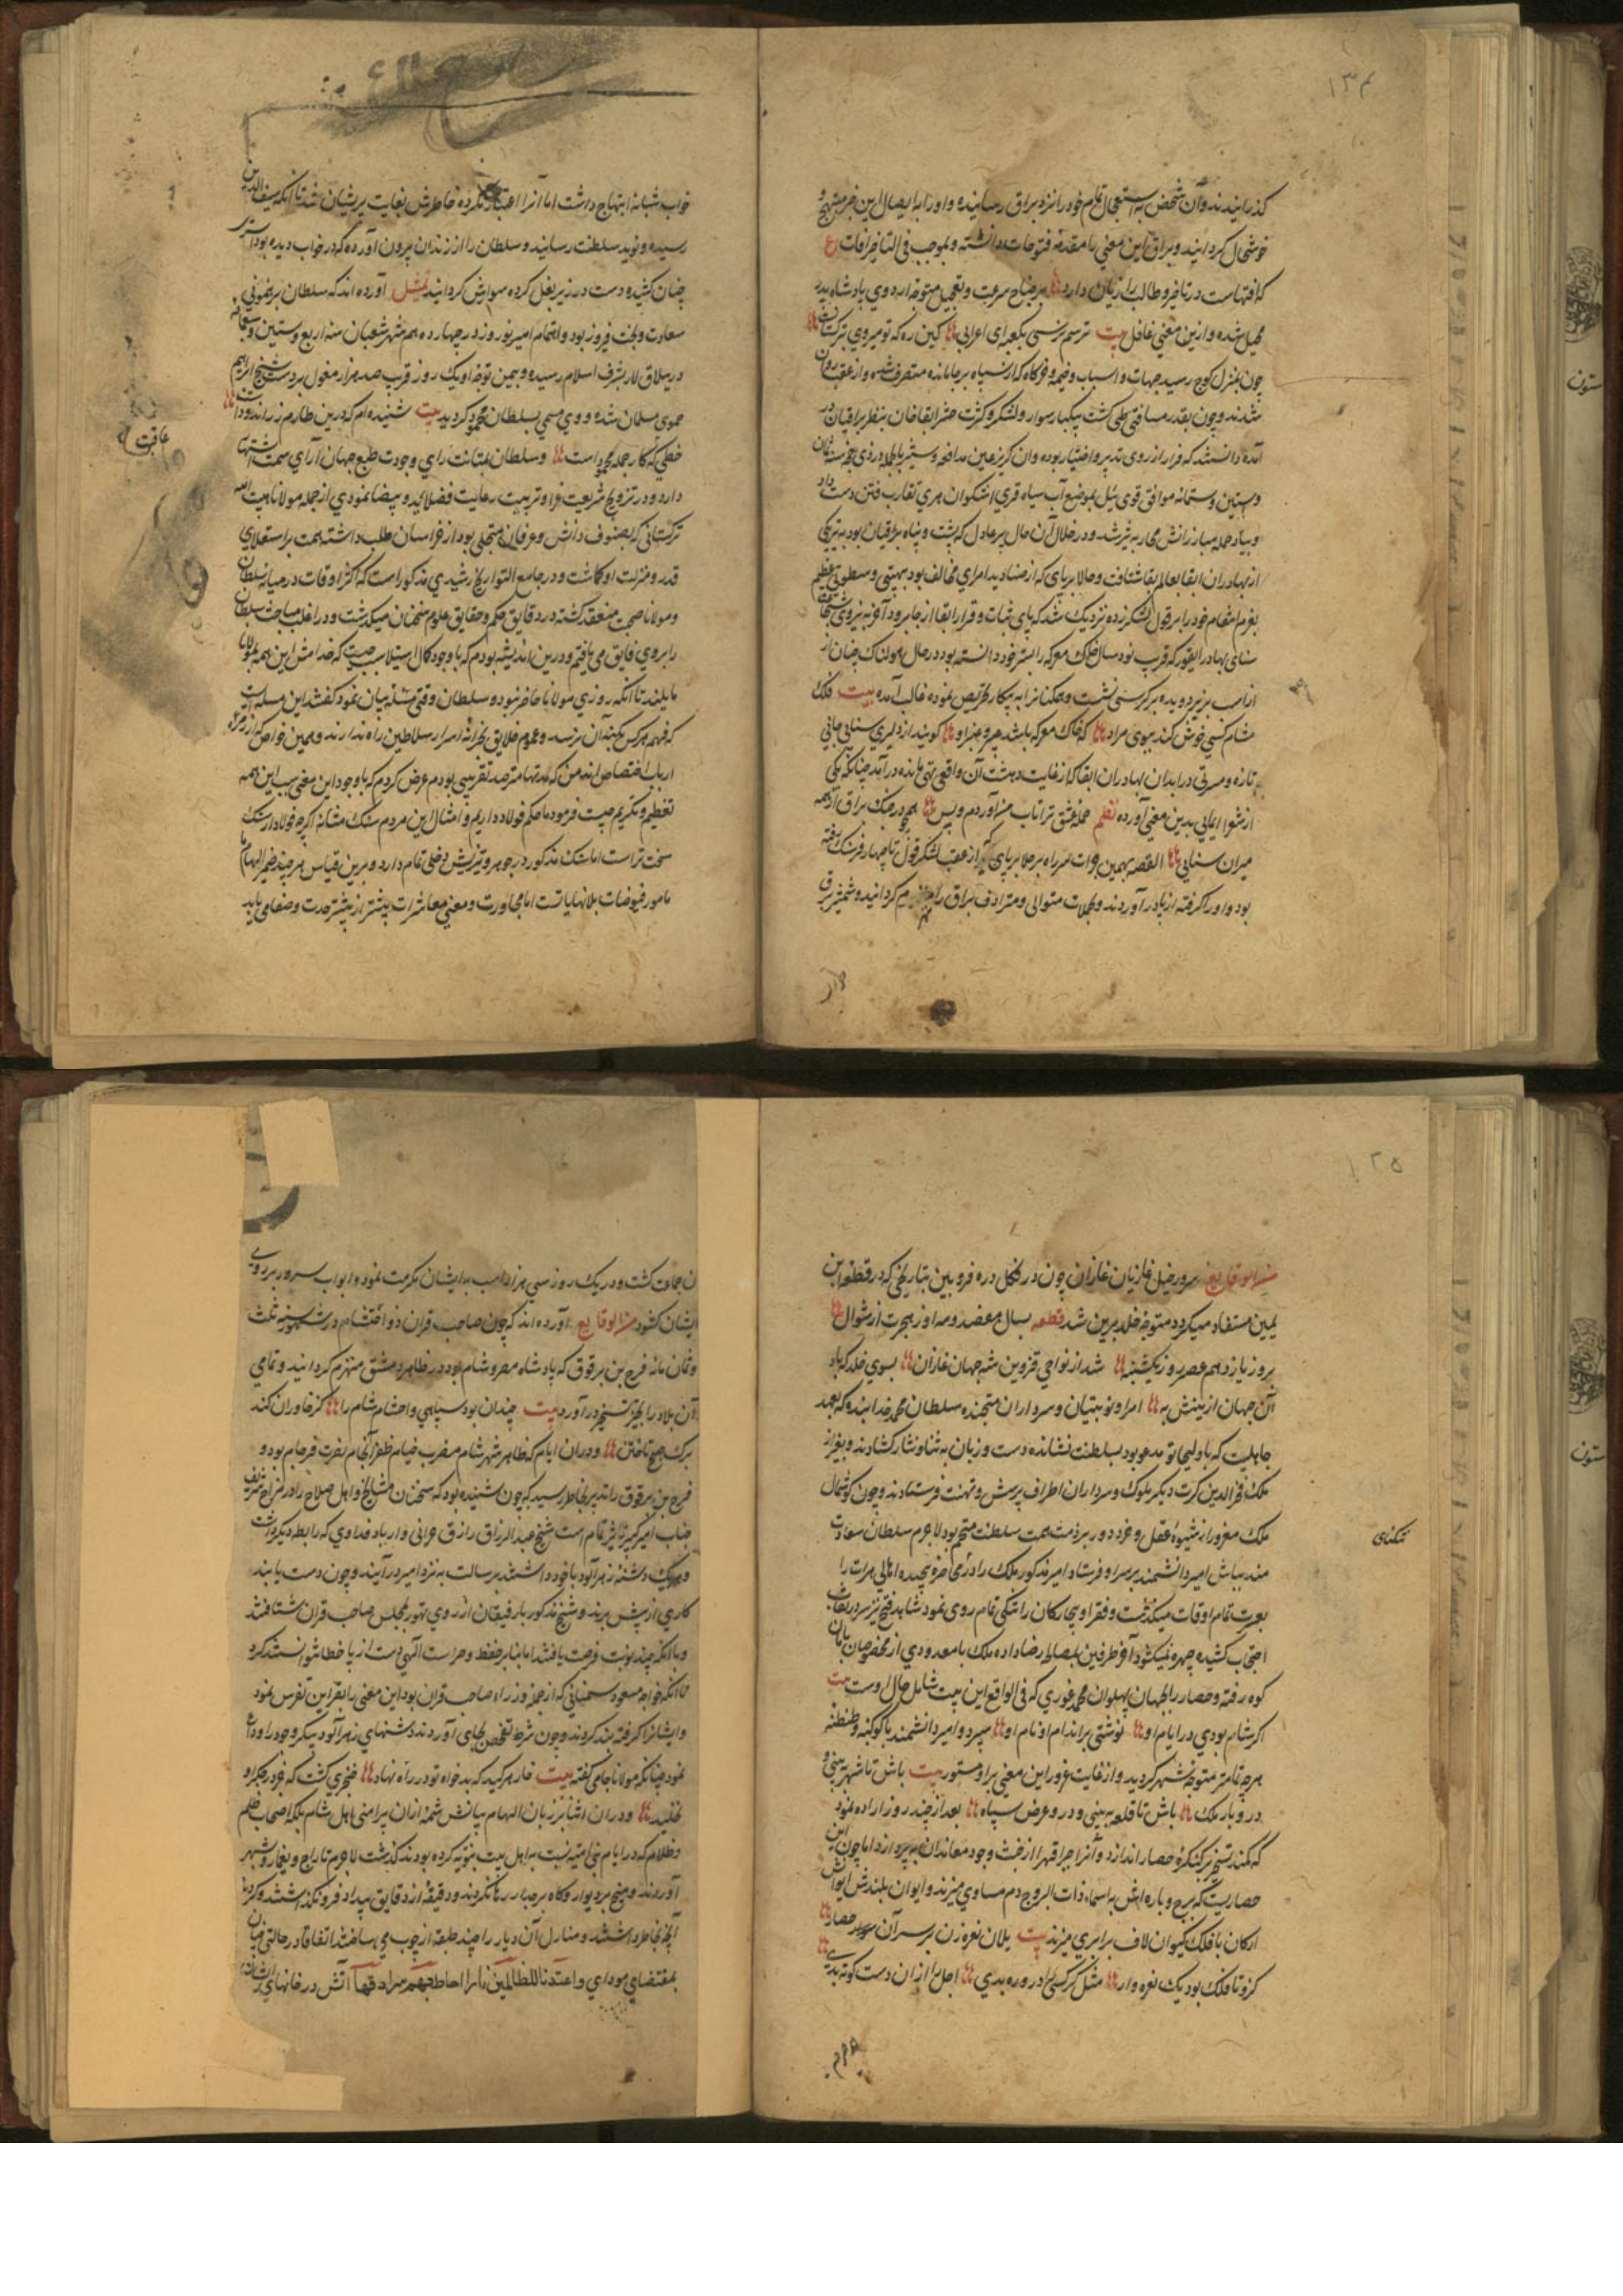 ۱۳۴
کذرانیدند و آن شخص به استعجال تمام خود را نزد براق رسانیده و او را به ایصال این خبر مبتهج و
خوشحال کردانید و براق این معنی را مقدمهٔ فتوحات دانسته و بموجب فی التاخیر افات ع
که افتهاست در تاخیر و طالب را زیان دارد بر جناح سرعت و تعجیل متوجه اردوی پادشاه
شده و ازین معنی غافل بیت ترسم نرسی بکعبه ای اعرابی کین ره که تو میروی بترکستان
چون بمنزل کوچ رسید جهات و اسباب و خیمه و خرکاه که از سپاه بر جا مانده متصرف
شدند و چون بقدر مسافتی طی کشت بیکبار سوار و لشکر و کثرت حشر ابقاخان بنظر براقیان در
آمده دانستند که فرار از روی تدبیر و اختیار بوده وان کریز عین مدافعه و ستیز
وستین وستمائه موافق قوی ئیل بموضع آب سیاه قری اشکوان هری تقارب فئتین دست داد
و در خلال آن حال مرغاول که پشت و پناه براقیان بود به تیر یکی
از بهادران ابقا بعالم بقا شتافت و جلایرتای که از صنادید امرای مخالف بود بهیبتی و سطوتی عظیم
بعزم انتقام خود را بر قول لشکر زده نزدیک شد که پای ثبات و قرار ابقا از جا برود آخر به نیروی شجاعت
سنتای بهادر که قرب نود سال خاک معرکه را بستر خود دانسته بود در حال هولناک چنان از
از اسب بزیر دویده بر کرسی نشست و همکنانرا به پیکار تحریص نموده غالب آمده بیت فلک
مشام کسی خوش کند ببوی مراد که خاک معرکه باشد عبیر و عنبر او کویند از دلیری سنتای جانی
تازه و مسرتی در ابدان بهادران ابقا که از غایت دهشت آن واقعه تهی مانده درآمد چنانکه یکی
از شعرا ایمایی بدین معنی آورده نظم حملهٔ عشق ترا تاب من آوردم و بس همچو در جنک براق از همه
میران سنتای القصه بهمین وات سر راه بر جلایرتای که از عقب لشکر قول تا چهار فرسنک رفته
بود و او را کرفته از پا درآوردند و بحملات متوالی و مترادف براق را منهزم کردانید و شمشیر
خواب شبانه ابتهاج داشت اما آنرا اعتبار نکرده خاطرش بغایت پریشان شد تا آنکه سیف الدین
رسیده و نوید سلطنت رسانید و سلطان را از زندان بیرون آورده که در خواب دیده بود
چنان کشیده دست در زیر بغل کرده سوارش کردانید تمثیل آورده اند که سلطان برهنمونی
سعادت و بخت فیروز بود و اهتمام امیر نوروز در چهاردهم شهر شعبان سنه اربع و ستین
در ییلاق لار بشرف اسلام رسیده و بیمن توجه او یک روز قرب صد هزار مغول بر دست شیخ ابراهیم
حموی مسلمان شده و وی مسمی بسلطان محمود کردید بیت شنیده ام که درین طارم زر اندودست
خطی که کار جمله محمود است و سلطان بمتانت رای و جودت طبع جهان آرای سمت اشتهار
دارد و در ترویج شریعت غرا و تربیت رعایت فضلا ید بیضا نمودی از جمله مولانا هبت الله
ترکستانی که بصنوف دانش و عرفان متحلی بود از خراسان طلب داشته همت بر استعلای
قدر و منزلت او کماشت و در جامع التواریخ رشیدی مذکور است که اکثر اوقات در میانه سلطان
و مولانا صحبت منعقد کشته در دقایق حکم و حقایق علوم سخنان میکذشت و در اغلب مباحث سلطان
را بر وی فایق می یافتم و درین اندیشه بودم که با وجود کمال استیلا سبب چیست که خدامش این همه بمولانا
مایلند تا آنکه روزی مولانا حاضر نبود و سلطان وقتی مسئله بیان نمود کفتند این مسله ایست
که فهم هرکس بکنه آن نرسد و عموم خلایق بخزانهٔ اسرار سلاطین راه ندارند و همین خواص که از زمره
ارباب اختصاص اند من که مدتها مترصد تقریبی بودم عرض کردم که با وجود این معنی سبب این همه
تعظیم و تکریم چیست فرمود ما حکم فولاد داریم و امثال این مردم سنک مثابه اکرچه فولاد از سنک
سخت تر است اما سنک مذکور در جوهر و تیزیش دخلی تمام دارد و برین قیاس هرچند ضمیر الهام
مامور فیوضات بلا نهایات است اما بمجاورت و معنی معاشرات بیشتر از پیشتر حدت و صفا می یابد
عاقبت
۱۳۵
من الوقایع سرور خیل غازیان غازان چون در فحل دره قزوین بتاریخی که در قطعه ابن
یمین مستفاد میکردد متوجه خلد برین شد قطعه بسال هفصد و سه از هجرت از شوال
بروز یازدهم عصر روز یکشنبه شد از نواحی قزوین شه جهان غازان بسوی خلد که باد
آن جهان ازینش به امرا و نوینیان و سرداران متجنده سلطان محمد خدابنده که بعهد
جاهلیت که باولجایتو مدعو بود بسلطنت نشانده دست و زبان به ثنا و نثار کشادند و بغیر از
ملک فخر الدین کرت دیکر ملوک و سرداران اطراف پرسش و تهنیت فرستادند و چون کوشمال
ملک مغرور از شیوهٔ عقل و خرد دور بر ذمت همت سلطنت متحتم بود لاجرم سلطان سعادت
مند بیباش امیر دانشمند بر سر او فرستاد امیر مذکور ملک را در محاصره پیچیده اهالی هرات را
بعسرت تمام اوقات میکذشت و فقرا و بیچارکان را تنکی تمام روی نمود شاهد فتح نیز سر در نقاب
احتجاب کشیده چهره نمیکشود آخر طرفین بمصالحه رضا داده ملک با معدودی از مخصوصان بامان
کوه رفته و حصار را بجهان پهلوان محمد غوری که فی الواقع این بیت شامل حال اوست بیت
اکر سام بودی در ایام او نوشتی بر اندام او نام او سپرد و امیر دانشمند با کوکبه و طنطنهٔ
هرچه تمامتر متوجه شهر کردید و از غایت غرور این معنی بر او مستور بیت باش تا شهر به بینی و
در و بار ملک باش تا قلعه به بینی و در و عرض سپاه بعد از چند روز اراده نمود
که کمند تسخیر بر کنکرهٔ حصار اندازد و آنرا جبرا قهرا از خبث وجود معاندان به پردازد اما چون این
حصاریست که برج و باره اش با سماء ذات البروج دم مساوی میزند و ایوان بلندش
ارکان با فلک کیوان لاف برابری میزند بیت یلان نعره زن بر سر آن حصار
کزو تا فلک بود یک نعره وار مثل کرکسی را در وره بدی اجل را از ان دست کوته بدی
تنکنای
ن جماعت کشت و در یک روز سی هزار اسب به ایشان مکرمت نمود و ابواب سرور بر روی
ایشان کشود من الوقایع آورده اند که چون صاحب قران ذو احتشام در شهور سنه ثلث
و ثمان مائه فرج بن برقوق که پادشاه مصر و شام بود در ظاهر دمشق منهزم کردانید و تمامی
آن بلاد را بحیز تسخیر درآورد بیت چندان بود سپاهی و احشام شام را کز خاوران کند
برک صبح تاختن و دران ایام که ظاهر شهر شام مضرب خیام ظفر انجام نصرت فرجام بود و
فرج بن برقوق را تدبیر بخاطر رسید که چون شنیده بود که سخنان مشایخ و اهل صلاح را در مزاج شریف
جناب امیر کبیر تاثیر تمام است شیخ عبد الرزاق رازق حرانی و اربا د فداوی که رابطه دیکر داشت
و هر یک دشنهٔ زهر آلود با خود داشتند برسالت به نزد امیر درآیند و چون دست یابند
کاری از پیش برند و شیخ مذکور با رفیقان از روی تهور بمجلس صاحب قران شتافتند
و با آنکه چند نوبت فرصت یافتند اما بنابر حفظ و حراست الهی دست از پا خطا نتوانستند کرد
تا آنکه خواجه مسعود سمنانی که از جمله وزراء صاحب قران بود این معنی را بقراین تفرس نمود
و ایشانرا کرفته بند کردند و چون شرط تفحص بجای آوردند دشنهای زهر آلود پیکر وجود را وداع
نمود چنانکه مولانا جامی کفته بیت خار هر کید که بدخواه تو در راه نهاد خنجری کشت که جز در جکر او
نخلید و دران اثنا بر زبان الهام بیانش شمهٔ ازان پرامنی اهل شام بلکه اصحاب ظلم
و ظلام که در ایام بنی امیه نسبت به اهل بیت نبویه کرده بودند کذشت لاجرم تاراج و یغما رو بشهر
آوردند و هیچ بر دیوار و کاه بر جدار رها نکردند و دقیقهٔ از دقایق بیداد فرو نکذاشتند و کردند
آنچه بخاطر داشتند و منازل آن دیار را چند طبقه از چوب می ساختند اتفاقا در حالتی چنان
بمقتضای مودای و اعتدنا للظالمین نارا احاط بهم سرادقها آتش در خانهای ایشان
ستون
ستون